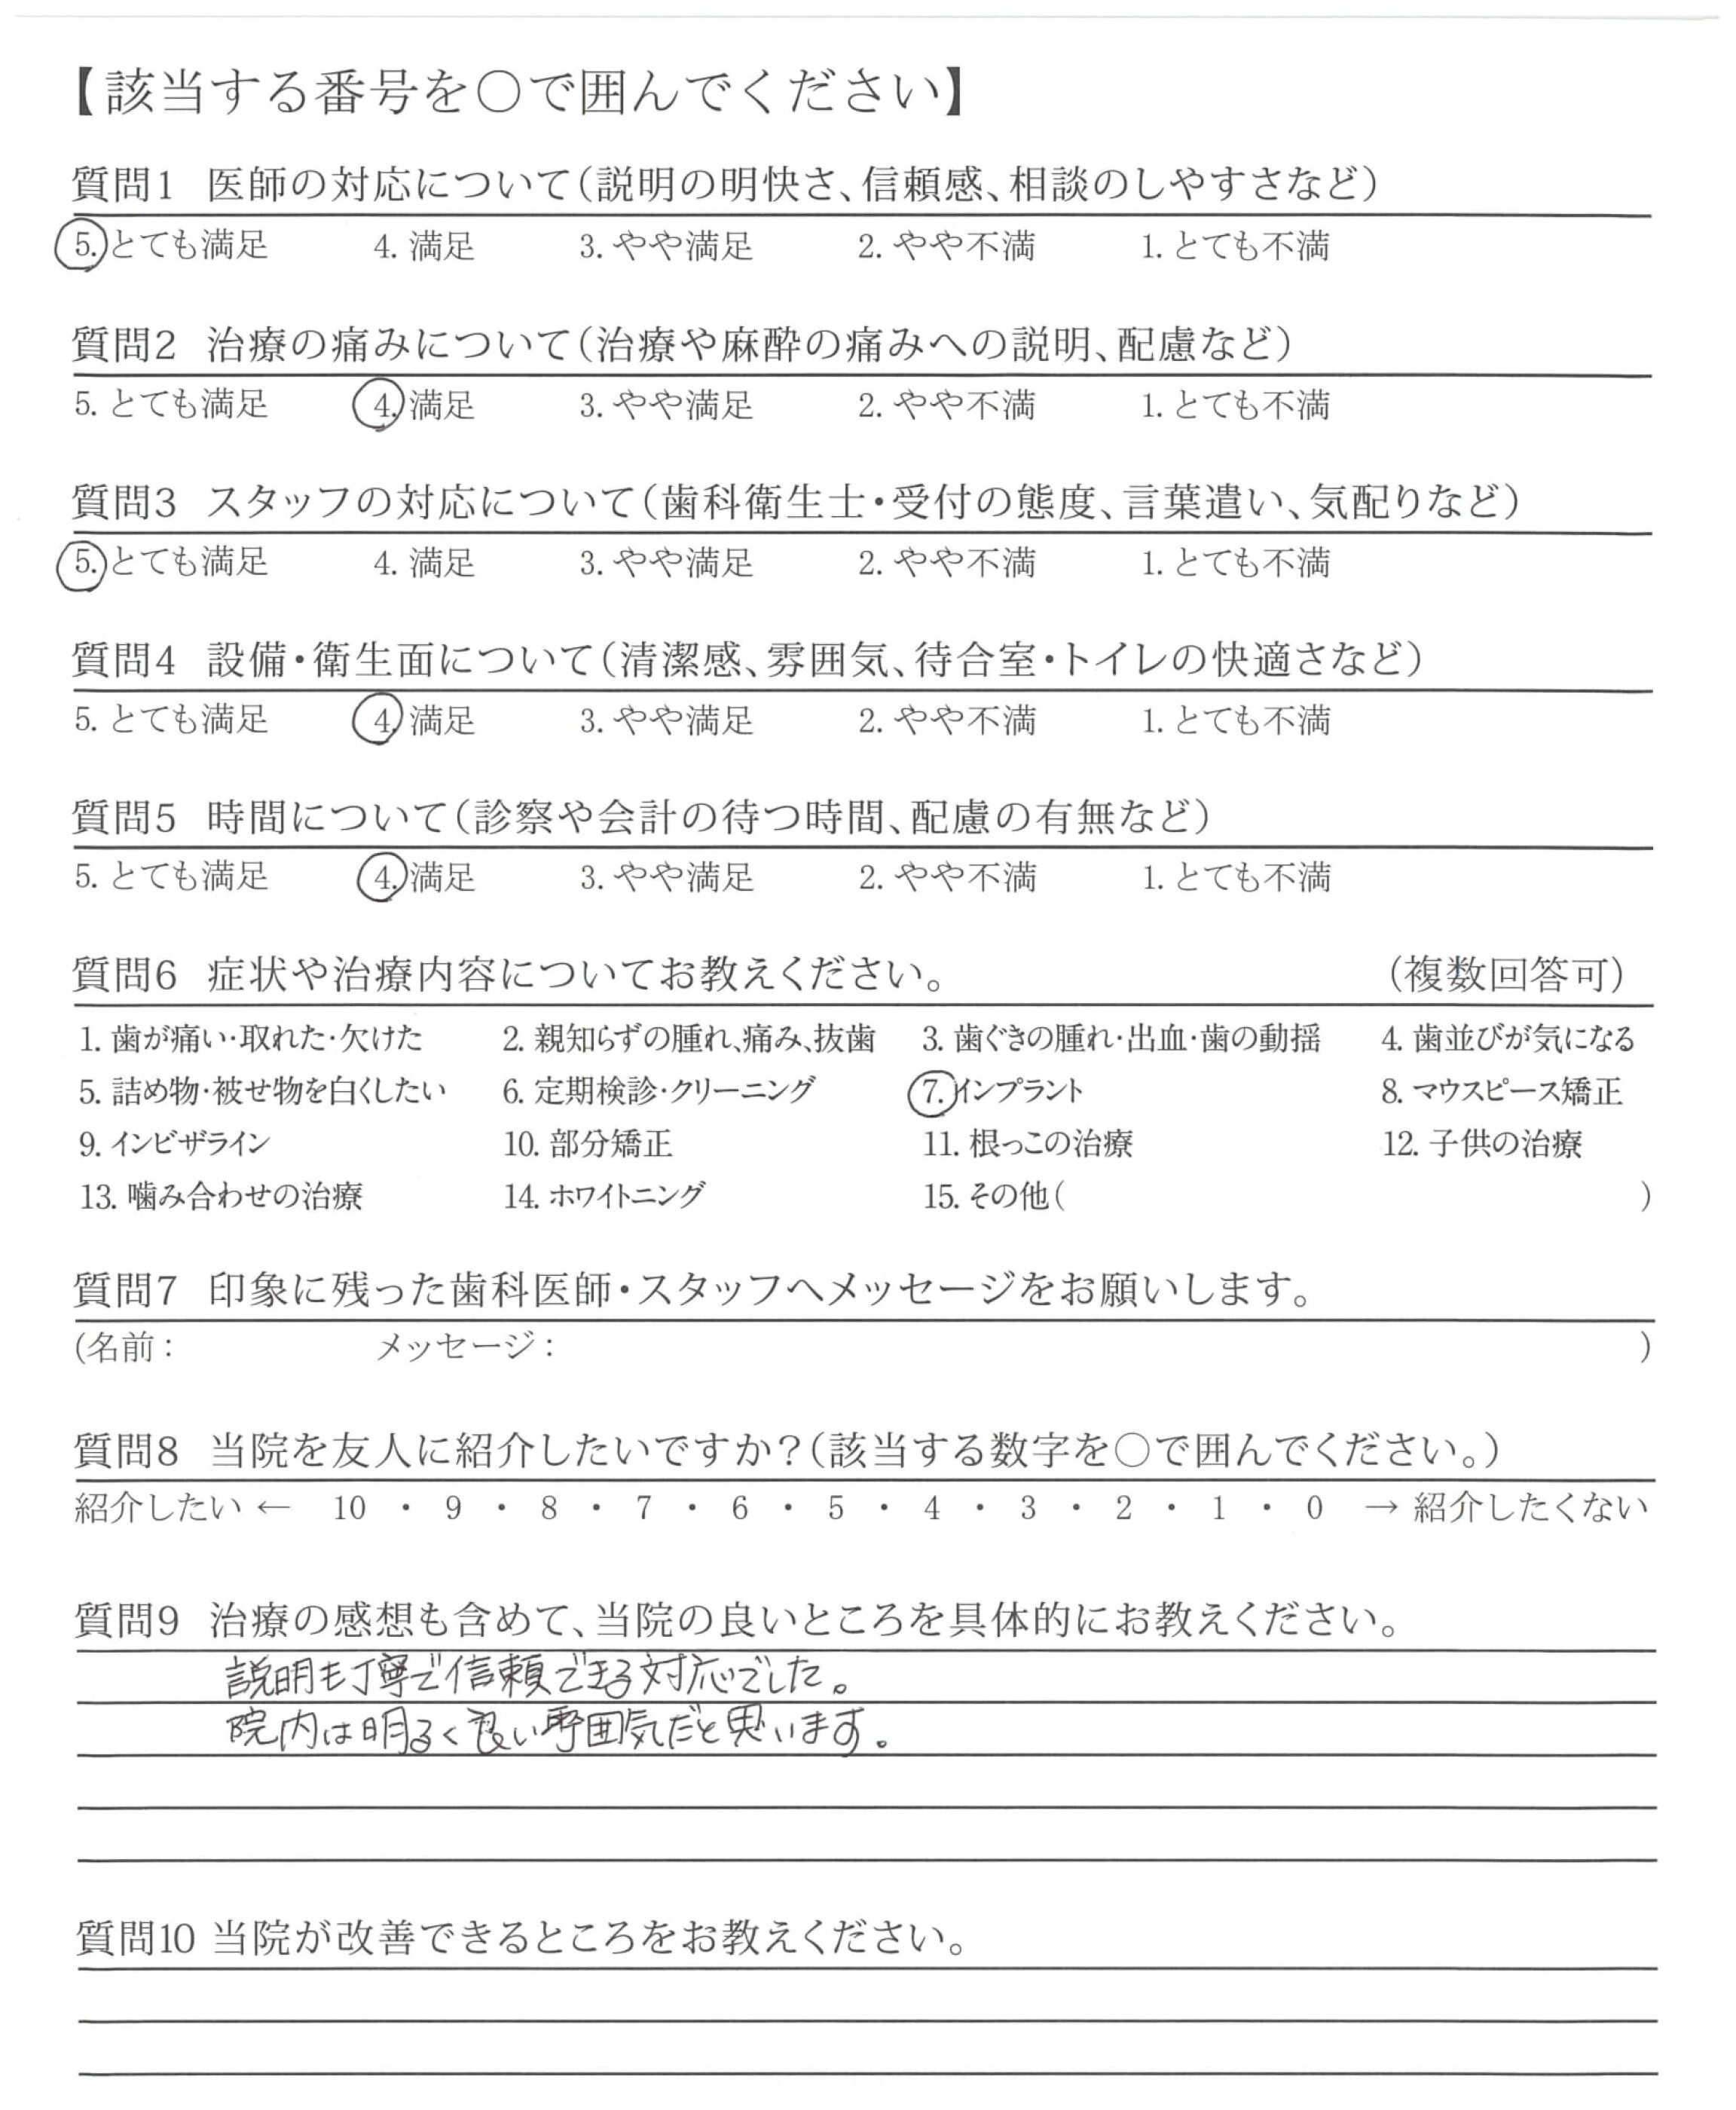 【該当する番号を○で囲んでください】
質問1 医師の対応について(説明の明快さ、信頼感、相談のしやすさなど)
5. とても満足 4. 満足 3. やや満足 2. やや不満 1. とても不満
質問2 治療の痛みについて(治療や麻酔の痛みへの説明、配慮など)
5. とても満足 4. 満足 3. やや満足 2. やや不満 1. とても不満
質問3 スタッフの対応について(歯科衛生士・受付の態度、言葉遣い、気配りなど)
5. とても満足 4. 満足 3. やや満足 2. やや不満 1. とても不満
質問4 設備・衛生面について(清潔感、雰囲気、待合室・トイレの快適さなど)
5. とても満足 4. 満足 3. やや満足 2. やや不満 1. とても不満
質問5 時間について(診察や会計の待つ時間、配慮の有無など)
5. とても満足 4. 満足 3. やや満足 2. やや不満 1. とても不満
質問6 症状や治療内容についてお教えください。 (複数回答可)
1. 歯が痛い・取れた・欠けた 2. 親知らずの腫れ、痛み、抜歯 3. 歯ぐきの腫れ・出血・歯の動揺 4. 歯並びが気になる
5. 詰め物・被せ物を白くしたい 6. 定期検診・クリーニング 7. インプラント 8. マウスピース矯正
9. インビザライン 10. 部分矯正 11. 根っこの治療 12. 子供の治療
13. 噛み合わせの治療 14. ホワイトニング 15. その他( )
質問7 印象に残った歯科医師・スタッフへメッセージをお願いします。
(名前: メッセージ: )
質問8 当院を友人に紹介したいですか?(該当する数字を○で囲んでください。)
紹介したい ← 10 ・ 9 ・ 8 ・ 7 ・ 6 ・ 5 ・ 4 ・ 3 ・ 2 ・ 1 ・ 0 → 紹介したくない
質問9 治療の感想も含めて、当院の良いところを具体的にお教えください。
説明も丁寧で信頼できる対応でした。
院内は明るく良い雰囲気だと思います。
質問10 当院が改善できるところをお教えください。